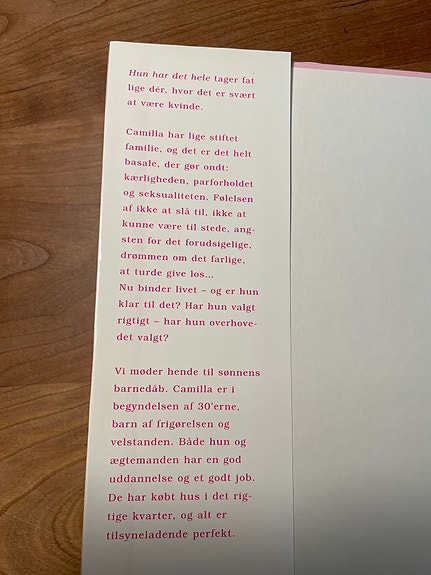 Hun har det hele tager fat
lige dér, hvor det er svært
at være kvinde.
Camilla har lige stiftet
familie, og det er det helt
basale, der gør ondt:
kærligheden, parforholdet
og seksualiteten. Følelsen
af ikke at slå til, ikke at
kunne være til stede, ang-
sten for det forudsigelige,
drømmen om det farlige,
at turde give løs...
Nu binder livet – og er hun
klar til det? Har hun valgt
rigtigt – har hun overhove-
det valgt?
Vi møder hende til sønnens
barnedåb. Camilla er i
begyndelsen af 30'erne,
barn af frigørelsen og
velstanden. Både hun og
ægtemanden har en god
uddannelse og et godt job.
De har købt hus i det rig-
tige kvarter, og alt er
tilsyneladende perfekt.